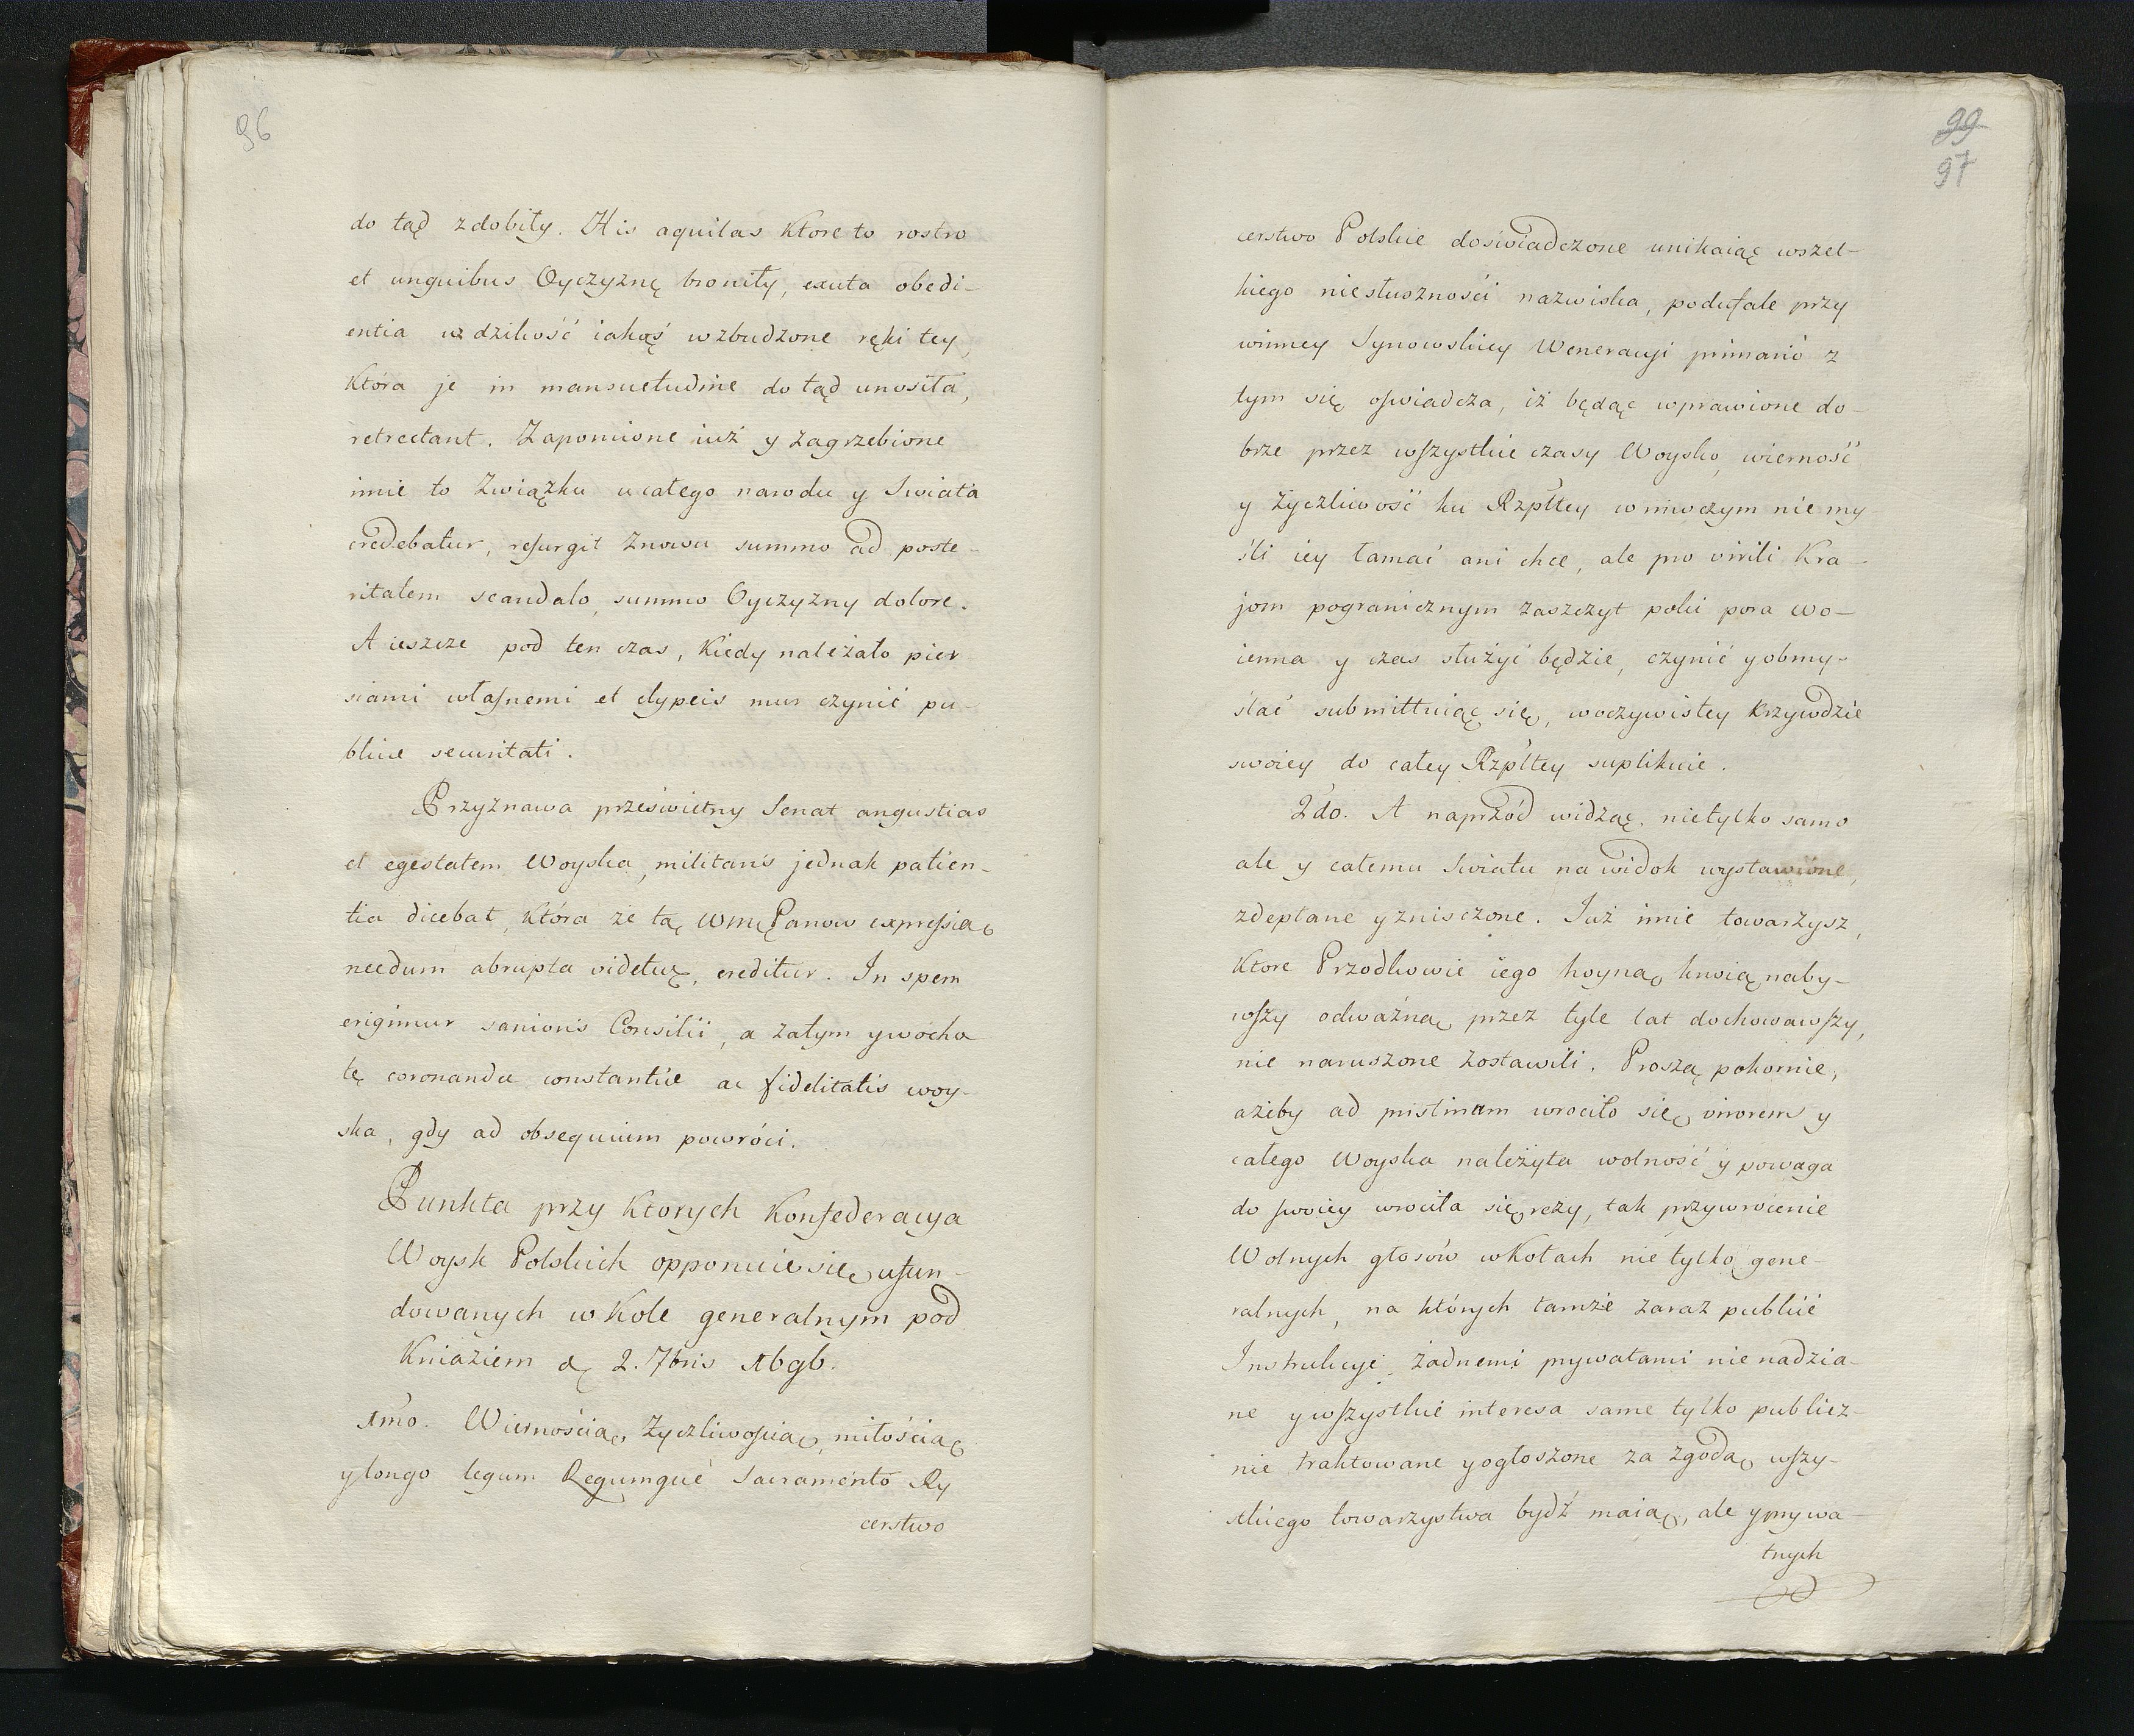 96
do tąd zdobiły. His aquilas które to rostro
et unguibus Oyczyznę broniły, exuta obedi-
entia w dzikość iakąś wzbudzone ręki tey,
która je in mansuetudine do tąd unosiła,
retrectant. Zapomione iuż y zagrzebione
imie to Związku u całego narodu y Swiata
credebatur, resurgit znowu summo ad poste-
ritatem scandalo, summo Oyczyzny dolore.
A ieszcze pod ten czas, kiedy należało pier
siami własnemi et clypeis mur czynić pu-
blicæ securitati.
Przyznawa prześwietny Senat angustias
et egestatem Woyska, militaris jednak patien-
tia dicebat, która że tą WmęPanow expressią
necdum abrupta videtur, creditur. In spem
erigimur sanioris Consilii, a zatym y wocho
tę coronandæ constantiæ ac fidelitatis woy-
ska, gdy ad obsequium powróci.
Punkta przy ktorych Konfederacya
Woysk Polskich opponuie się ufun-
dowanych w Kole generalnym pod
Kniażiem d 2. 7bris 1696.
1mo. Wiernością, życzliwością, miłością
y longo legum Regumque Sacramento Ry
cerstwo
99
97
cerstwo Polskie doświadczone unikaiąc wszel-
kiego niesłuszności nazwiska, podufale przy
winney Synowskiey Weneracyi primario z
tym się oświadcza, iż będąc wprawione do-
brze przez wszystkie czasy Woysko, wierność
y życzliwość ku Rzpltey w niwczym nie my-
śli iey łamać ani chce, ale pro virili Kra-
jom pogranicznym zaszczyt poki pora wo-
ienna y czas służyć będzie, czynić y obmy-
ślać submittuiąc się, woczywistey krzywdzie
swoiey do całey Rzpltey suplikuie.
2do. A naprzód widząc nietylko samo
ale y całemu Swiatu na widok wystawione,
zdeptane y znisczone. Już imie towarzysz,
ktore Przodkowie iego hoyną krwią naby-
wszy odważną przez tyle lat dochowawszy,
nie naruszone zostawili. Proszą pokornie,
ażeby ad pristinum wrociło się vivorem y
całego Woyska należyta wolność y powaga
do swoiey wrociła się rezy, tak przywrocenie
Wolnych głosów w Kołach nie tylko gene-
ralnych, na których tamże zaraz publice
Instrukcye żadnemi prywatami nie nadzia-
ne y wszystkie interesa same tylko publicz-
nie traktowane y ogłoszone za zgodą wszy-
stkiego towarzystwa bydź maią, ale y prywa-
tnych